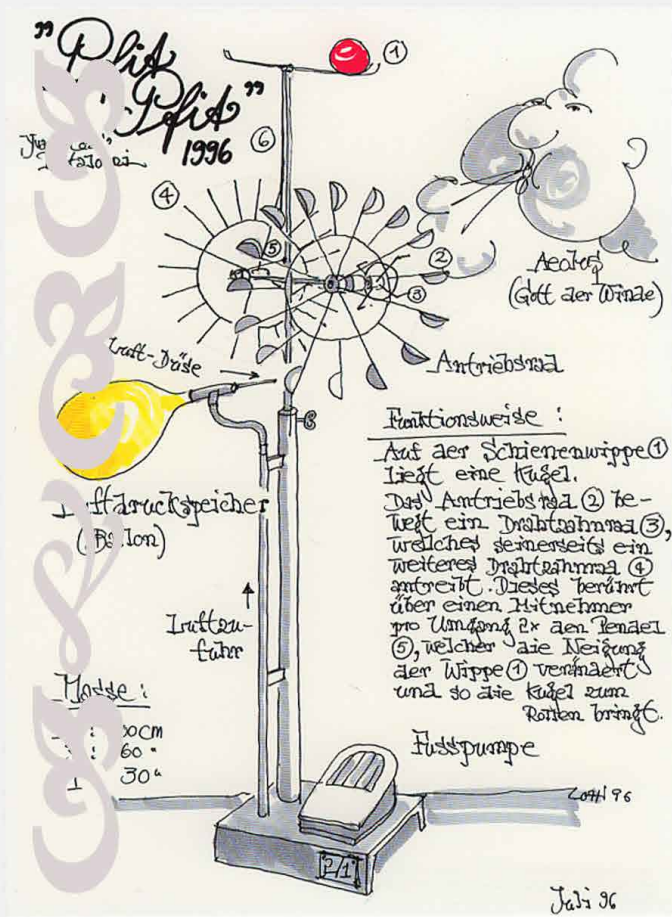 "Plit
Pfit"
1996
①
⑥
④
⑤
②
③
Aeolus
(Gott der Winde)
Luft-Düse
Antriebsrad
Luftdruckspeicher
(Ballon)
Funktionsweise :
Auf der Schienenwippe ①
liegt eine Kugel.
Das Antriebsrad ② be-
wegt ein Drahtzahnrad ③,
welches seinerseits ein
weiteres Drahtzahnrad ④
antreibt. Dieses berührt
über einen Mitnehmer
pro Umgang 2x den Pendel
⑤, welcher die Neigung
der Wippe ① verändert
und so die Kugel zum
Rollen bringt.
Luftzu-
fuhr
Masse :
60 "
30 "
Fusspumpe
96
P/1
Juli 96